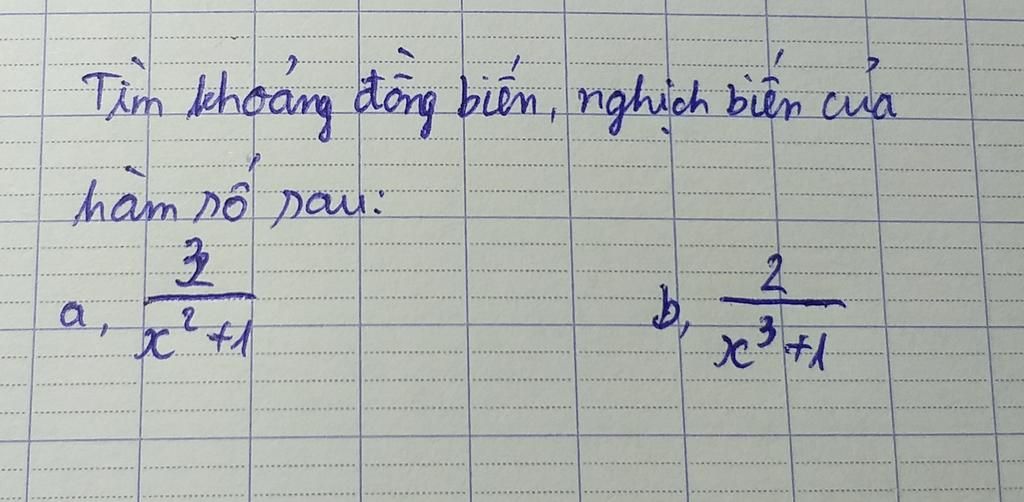 Tìm khoảng đồng biến, nghịch biến của
hàm số sau:
a, 3/(x²+1) b, 2/(x³+1)